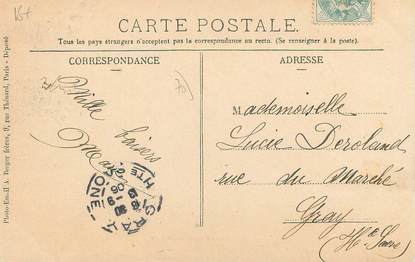 CARTE POSTALE.
Tous les pays étrangers n'acceptent pas la correspondance au recto. (Se renseigner à la poste).
CORRESPONDANCE
ADRESSE
Mille
baisers
Mademoiselle
Lucie Deroland
rue du Marché
Gray
(Hte Saône)
GRAY
HTE SAONE
Photo-Em-ll A. Berger frères, 9, rue Thénard, Paris - Déposé